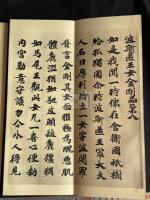 波斯匿王女金剛品第八
如是我聞一時佛在舍衛國祇樹
給孤獨園尒時波斯匿王摩大夫
人名曰摩利時生一女字波闍羅
晋言金剛其女面貌極為醜惡肌
體麁澁猶如蛇皮頭髮麁強
如馬尾王觀此女无一喜心便勑
內宮勤意守護勿令外人得見